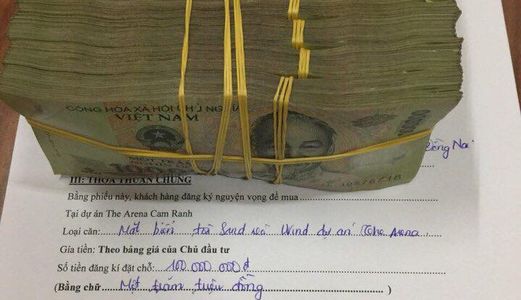 CỘNG HÒA XÃ HỘI CHỦ NGHĨA
VIỆT NAM
Đồng Nai
III: THỎA THUẬN CHUNG
Bằng phiếu này, khách hàng đăng ký nguyện vọng để mua
Tại dự án The Arena Cam Ranh
Loại căn: Mặt biển tòa Sand và Wind dự án The Arena
Gía tiền: Theo bảng giá của Chủ đầu tư
Số tiền đăng kí đặt chỗ: 100 000 000 đ
(Bằng chữ Một trăm triệu đồng )